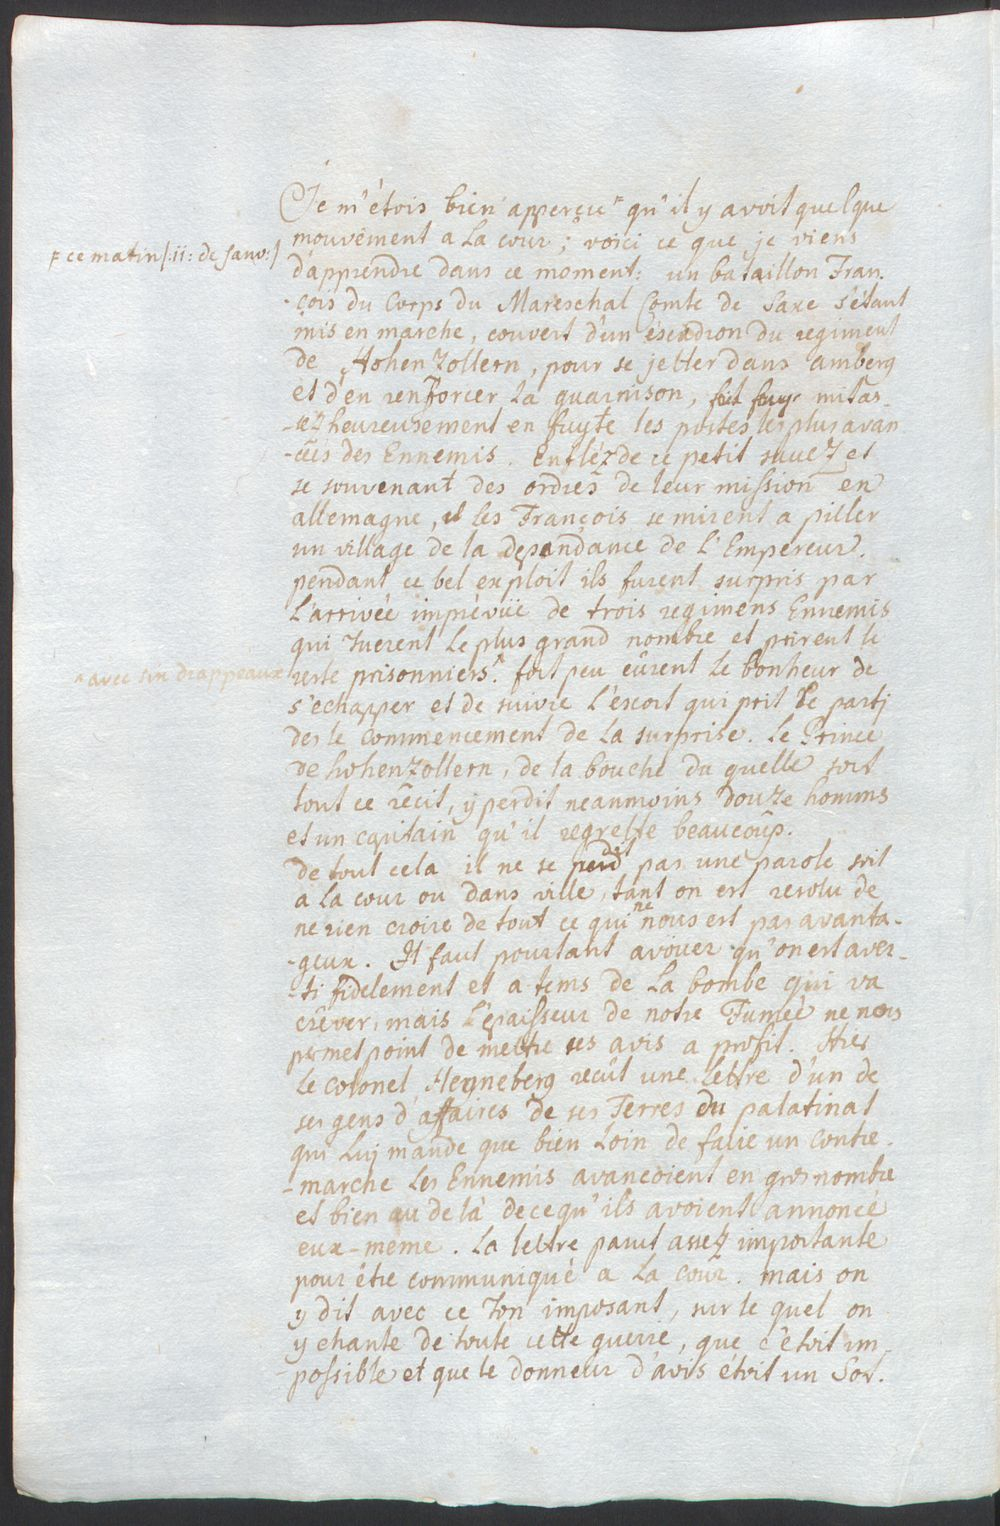 Je m'étois bien apperçu ⌜ qu'il y avoit quelque
⌜ ce matin /:11: de Janv:/
mouvement a la cour ; voici ce que je viens
d'apprendre dans ce moment: un bataillon Fran.
-çois du Corps du Mareschal Comte de Saxe s'étant
mis en marche, couvert d'un escadron du regiment
de Hohenzollern, pour se jetter dans Amberg
et d'en renforcer la guarnison, mit as-
-sez heureusement en fuyte les postes les plus avan
-cées des Ennemis. Enfléz de ce petit succez et
se souvenant des ordres de leur mission en
allemagne, les François se mirent a piller
un village de la dependance de L'Empereur.
pendant ce bel exploit ils furent surpris par
L'arrivée imprévüe de trois regimens Ennemis
qui tuerent le plus grand nombre et prirent le
reste prisonniers ^. fort peu eûrent le bonheur de
^ avec un drappeaux
s'echapper et de suivre l'escort qui prit le partj
des le commencement de la surprise. Le Prince
de hohenzollern, de la bouche du quelle sort
tout ce récit, y perdit neanmoins douze homms
et un capitain qu'il regrette beaucoup.
de tout cela il ne se dit pas une parole soit
a la cour ou dans ville, tant on est resolu de
ne rien croire de tout ce qui ne nous est pas avanta-
-geux. Il faut pourtant avouer qu'on est aver-
-ti fidelement et a tems de la bombe qui va
crêver, mais l'épaisseur de notre Fumée ne nous
permet point de mettre ses avis a profit. Hier
le colonel Henneberg recût une lettre d'un de
ses gens d'affaires de ses Terres du palatinat
qui luj mande que bien loin de faire un contre-
-marche les Ennemis avançoient en gros nombre
et bien au delà de ce qu'ils avoient annoncé
eux-meme. La lettre parut assez importante
pour être communiqué a la cour. mais on
y dit avec ce ton imposant, sur le quel on
y chante de toute cette guerre, que c'étoit im-
-possible et que le donneur d'avis étoit un Sot.